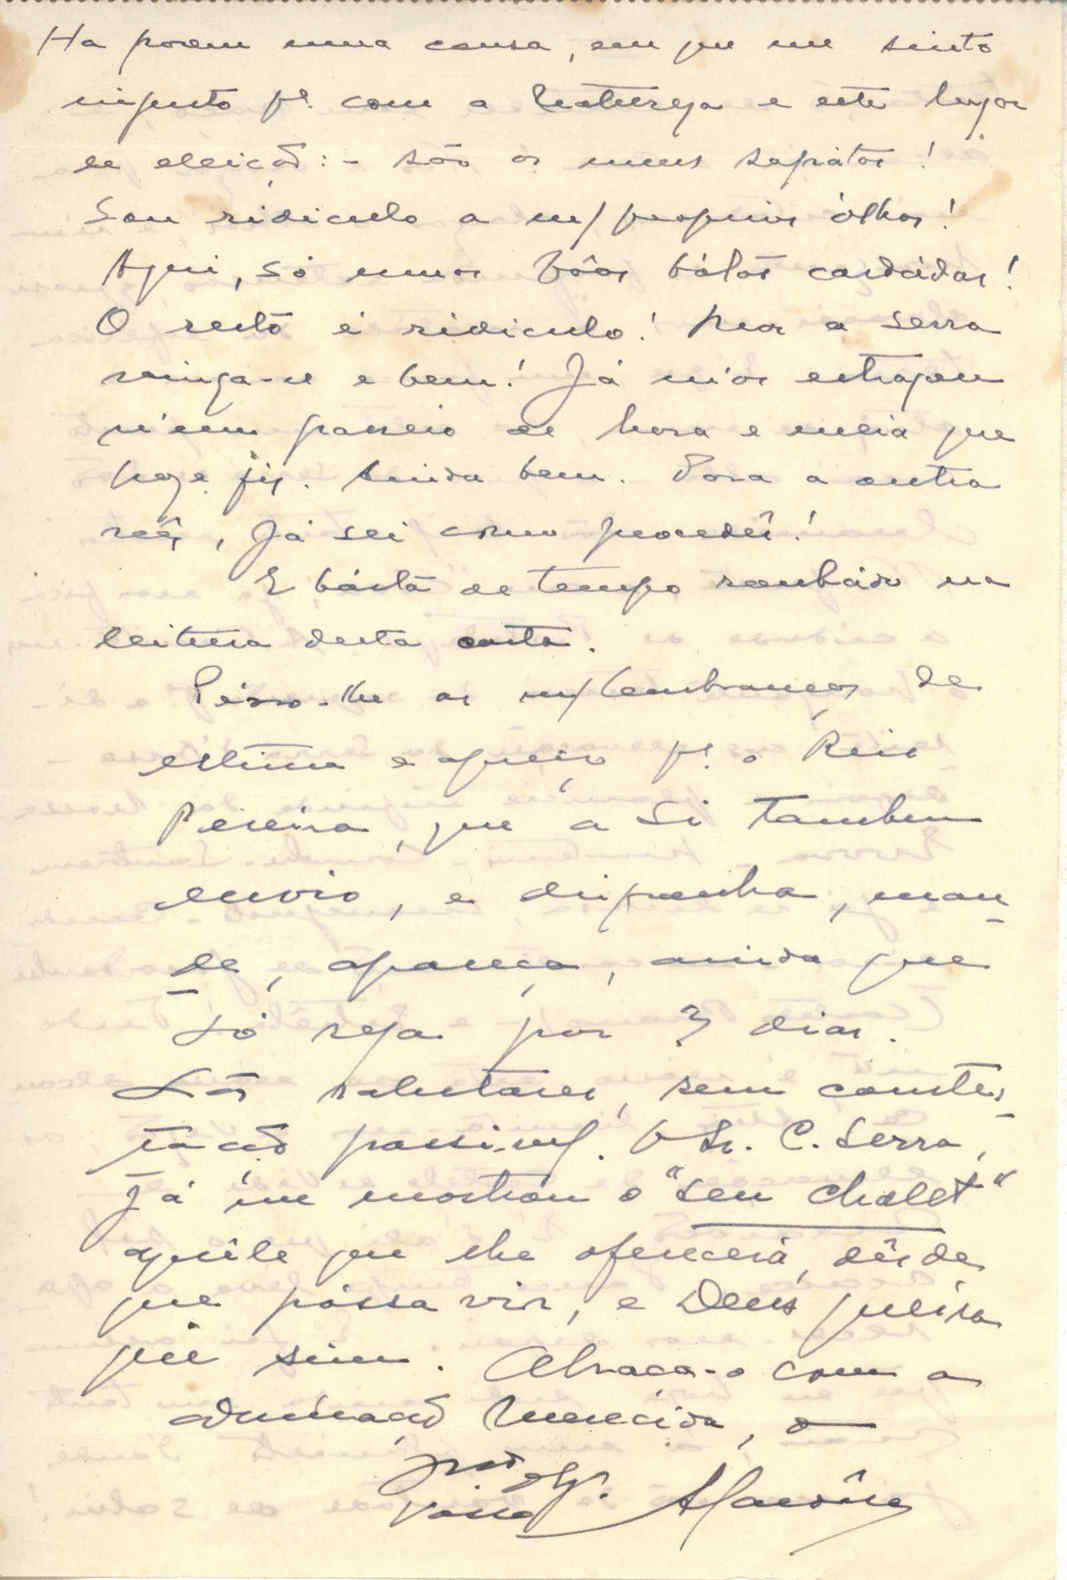 Ha porem uma cousa, em que me sinto
injusto pª. com a Natureza e este lugar
de eleição: - são os meus sapátos!
Sou ridiculo a m/ proprios ólhos!
Aqui, só umas bôas bótas cardádas!
O resto é ridiculo! Mas a serra
vinga-se e bem! Já m'os estragou
n'um passeio de hora e meia que
hoje fiz. Ainda bem. Para a outra
vêz, já sei como procedêr!
E básta de tempo roubádo na
leitura desta carta.
Peço-lhe as m/ lembranças de
estima e apreço pª. o Reis
Pereira, que a Si tambem
envio, e disponha, man-
de, apareça, ainda que
só seja por 3 dias.
São salutares, sem contes-
tação possivel. O Sr. C. Serra,
já me mostrou o "seu chalet"
aquêle que lhe oferecerá, dêsde
que póssa vir, e Deus queira
que sim. Abraça-o com a
admiração merecida, o
Vosso